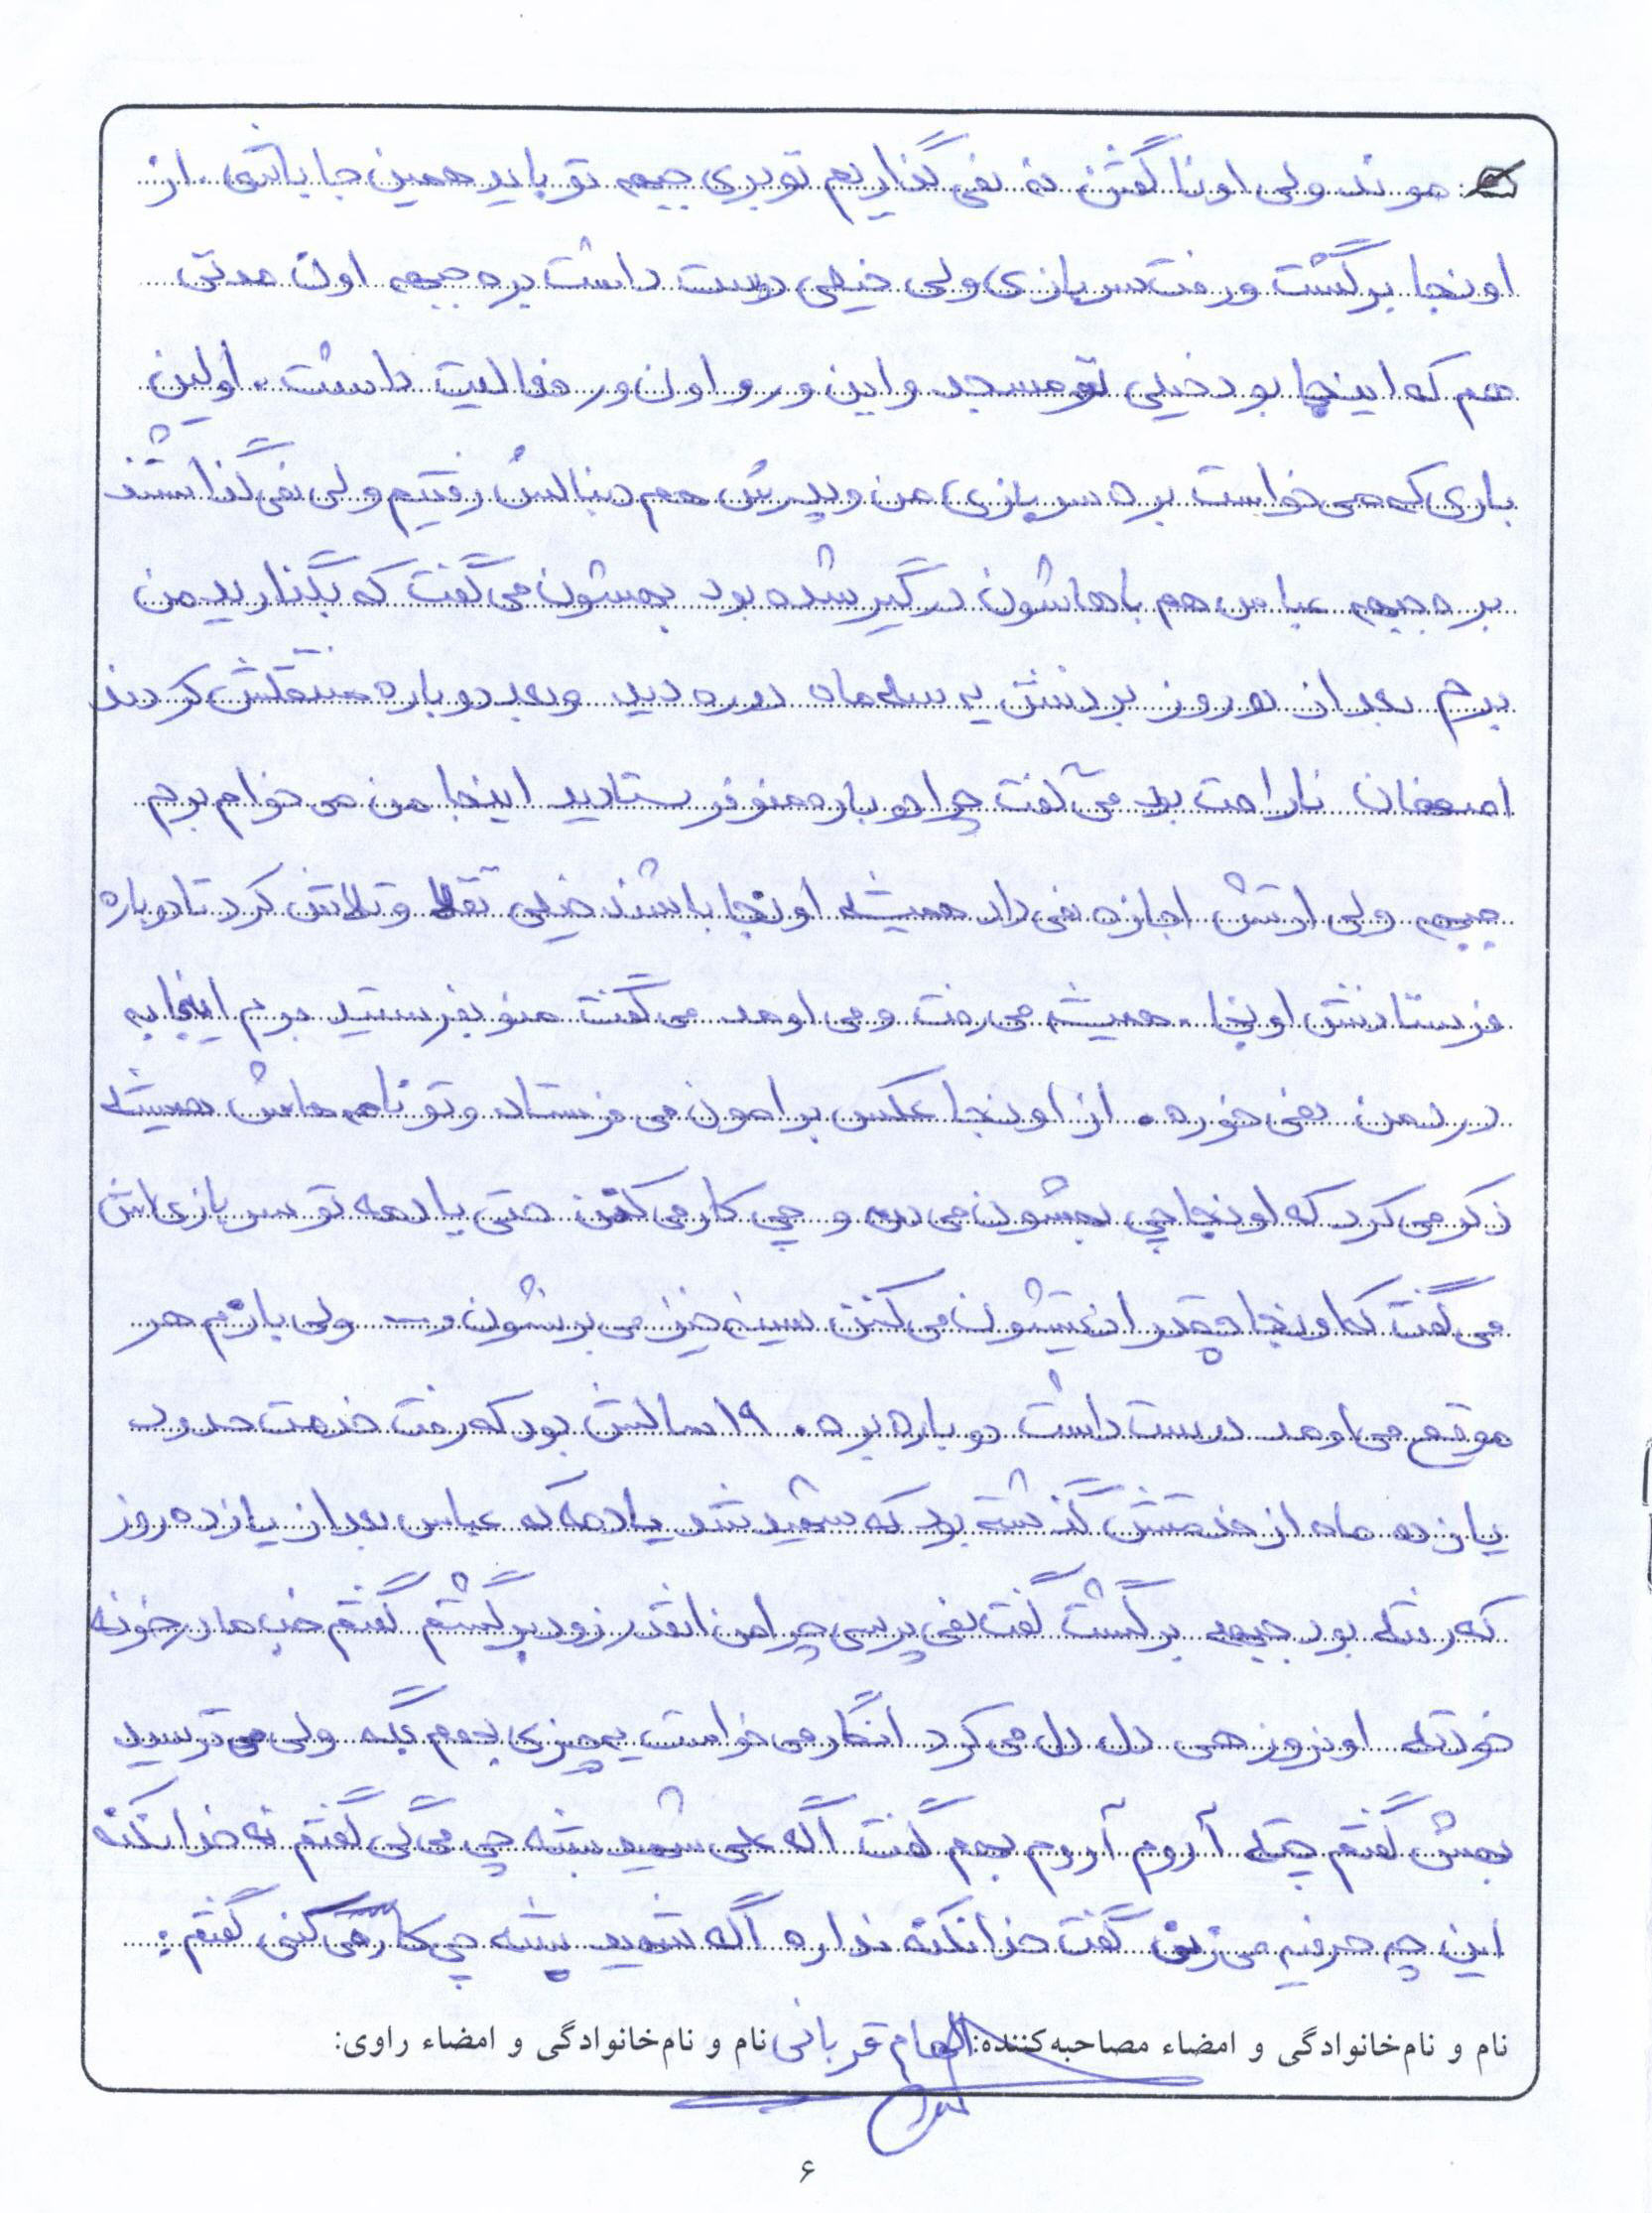 موند ولی اونا گفتن نه نمی گذاریم تو بری جبهه تو باید همین جا باشی. از
اونجا برگشت و رفت سربازی ولی خیلی دوست داشت بره جبهه اون مدتی
هم که اینجا بود خیلی تو مسجد و این ور و اون ور فعالیت داشت. اولین
باری که می خواست بره سربازی من و پدرش هم دنبالش رفتیم ولی نمی گذاشتند
بره جبهه عباس هم باهاشون درگیر شده بود بهشون می گفت که بگذارید من
برم بعد از دو روز بردنش یه سه ماه دوره دید و بعد دوباره منتقلش کردند
اصفهان ناراحت بود می گفت چرا دوباره منو فرستادید اینجا من می خوام برم
جبهه ولی ارتش اجازه نمی داد همیشه اونجا باشند خیلی تقلا و تلاش کرد تا دوباره
فرستادنش اونجا. همیشه می رفت و می اومد می گفت منو بفرستید برم اینجا به
درد من نمی خوره. از اونجا عکس برامون می فرستاد و تو نامه هاش همیشه
ذکر می کرد که اونجا چی بهشون می دن و چی کار می کنن حتی یادمه تو سربازی اش
می گفت که اونجا چقدر اذیتشون می کنن سینه خیز می برنشون و... ولی بازم هر
موقع می اومد دوست داشت دوباره بره. ۱۹ سالش بود که رفت خدمت حدود
یازده ماه از خدمتش گذشته بود که شهید شد یادمه که عباس بعد از یازده روز
که رفته بود جبهه برگشت گفت نمی پرسی چرا من انقدر زود برگشتم گفتم خب مادر خونه
خودته اونروز هی دل دل می کرد انگار می خواست یه چیزی بهم بگه ولی می ترسید
بهش گفتم چته آروم آروم بهم گفت اگه علی شهید بشه چی می گی گفتم نه خدا نکنه
این چه حرفیه می زنی گفت خدا نکنه نداره اگه شهید بشه چی کار می کنی گفتم:
نام و نام‌خانوادگی و امضاء مصاحبه‌کننده: الهام قربانی نام و نام‌خانوادگی و امضاء راوی:
۶